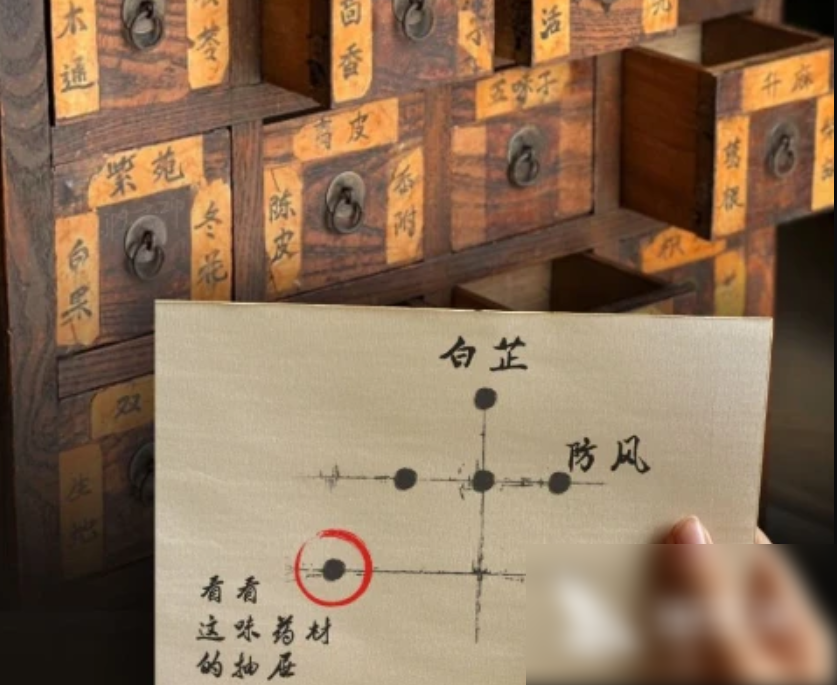 木通
茴香
活
升麻
葛根
五味子
青皮
陈皮
香附
紫苑
白果
冬花
双
生地
白芷
防风
看看
这味药材
的抽屉